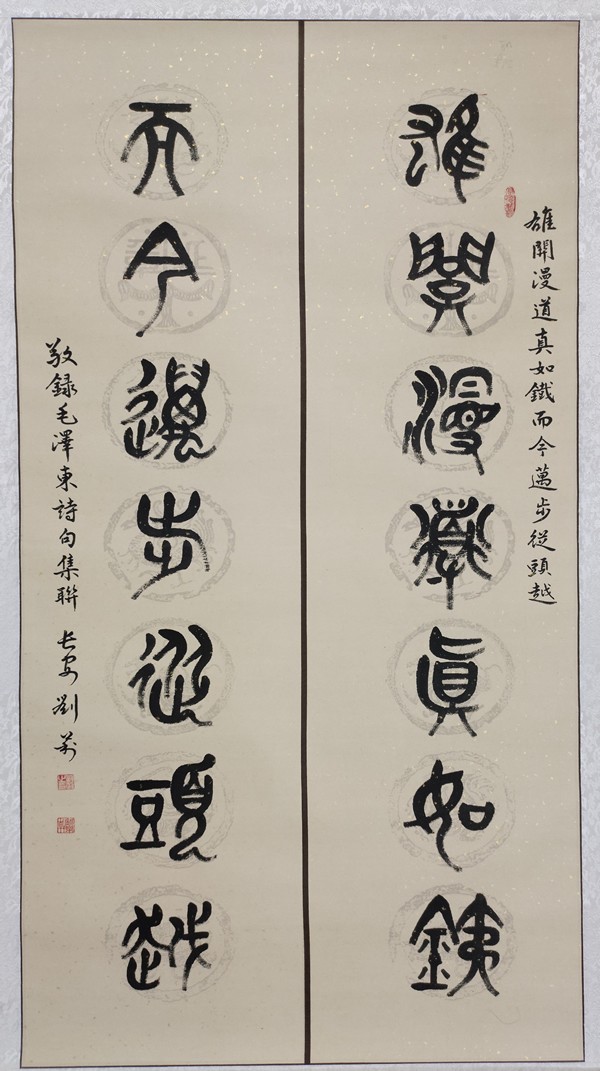 雄關漫道真如鐵而今邁步從頭越
雄關漫道真如鐵
而今邁步從頭越
敬録毛澤東詩句集聯 長安劉